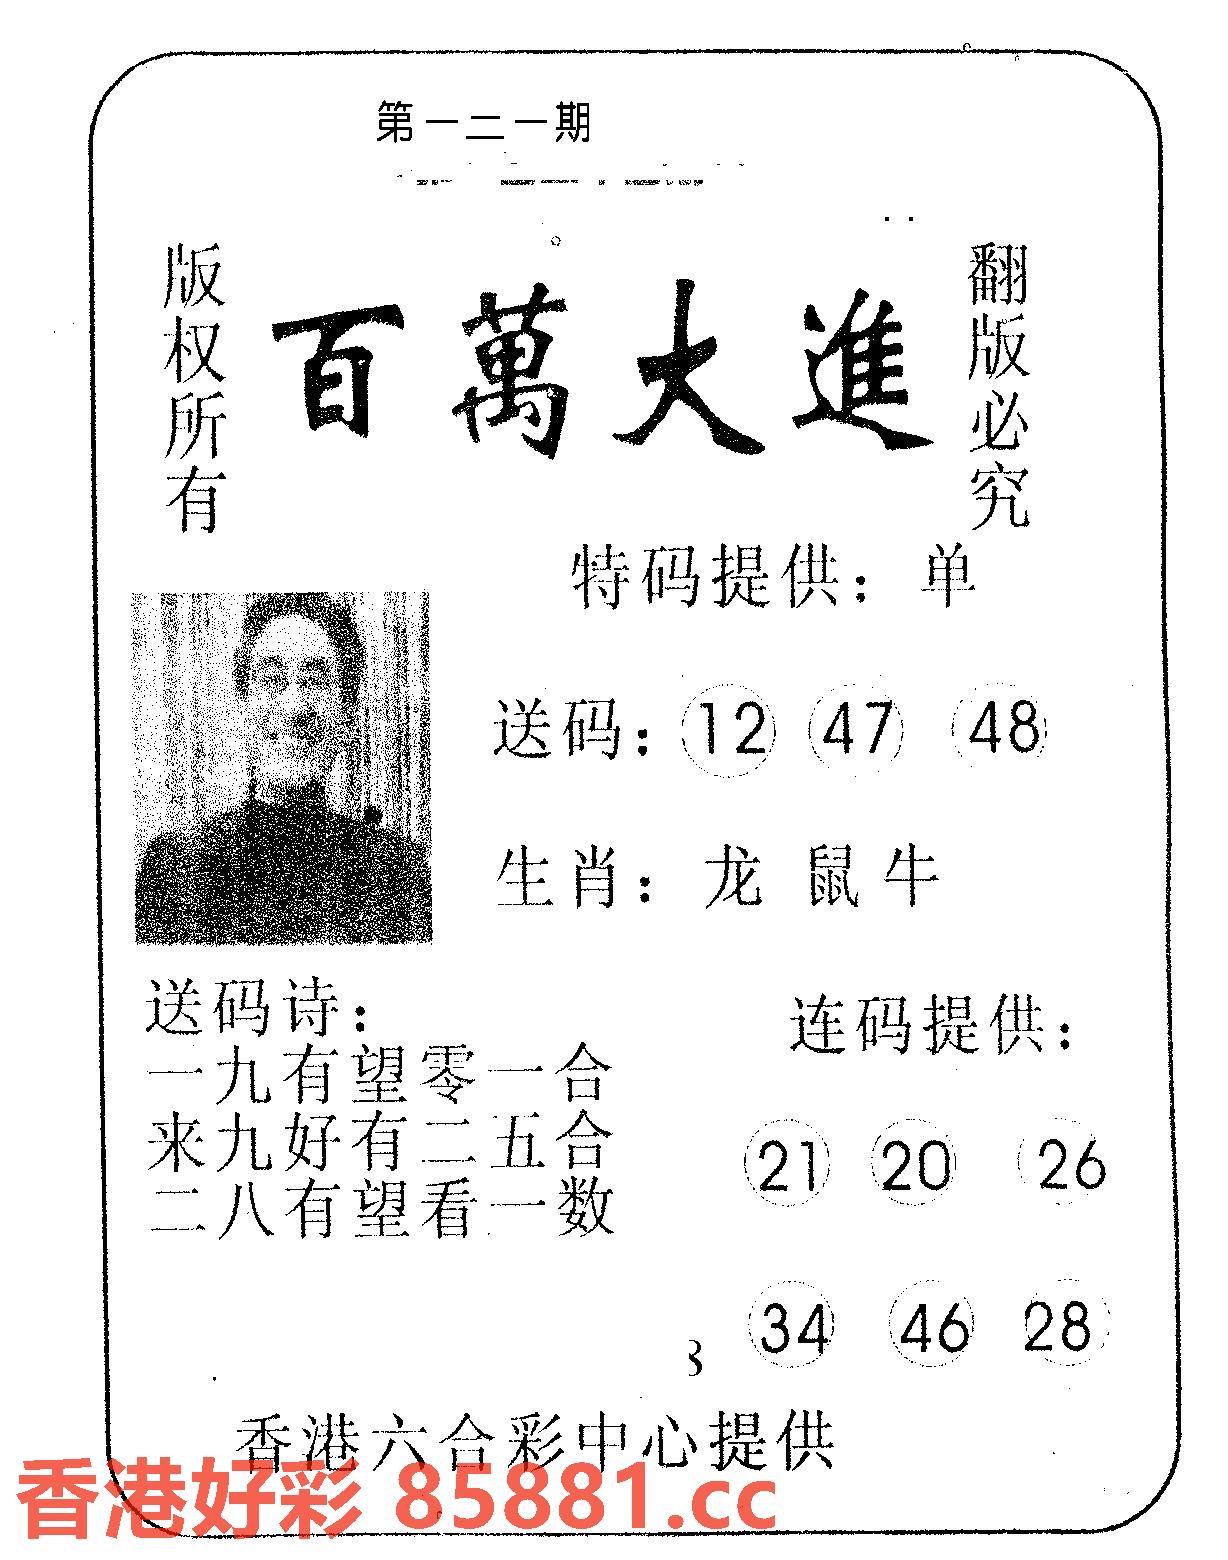 第一二一期
版权所有
百萬大進
翻版必究
特码提供：单
送码：12 47 48
生肖：龙 鼠 牛
送码诗：
一九有望零一合
来九好有二五合
二八有望看一数
连码提供：
21 20 26
34 46 28
香港六合彩中心提供
香港好彩 85881.cc